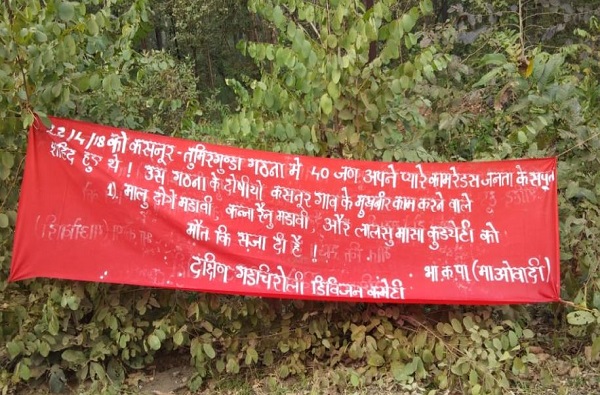 22/4/18 को कसनूर - तुमिरगुण्डा गठना मे 40 जण अपने प्यारे कामरेडस जनता के सपूत
शहिद हुए थे ! उस गठना के दोषीयो कसनूर गाव के मुखबीर काम करने वाले
1) मालु दोगे मडावी, कन्ना रैनु मडावी, और लालसु मासा कुडयेटी को
मौत कि सजा दी हैं !
दक्षिण गडचिरोली डिविजन कमेटी
भा क पा (माओवादी)